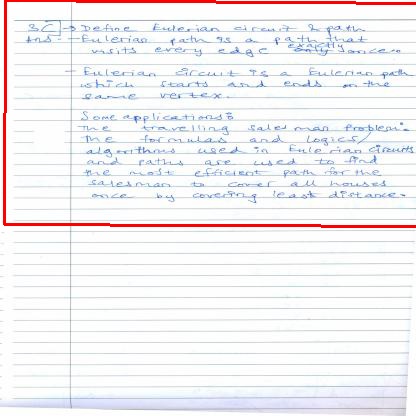 3C] → Define Eulerian circuit & path
Ans - - Eulerian path is a path that
visits every edge exactly once.
- Eulerian circuit is a Eulerian path
which starts and ends on the
same vertex.
Some applications:
The travelling sales man problem:-
The formulas and logics/
algorithms used in Eulerian circuits
and paths are used to find
the most efficient path for the
salesman to cover all houses
once by covering least distance.